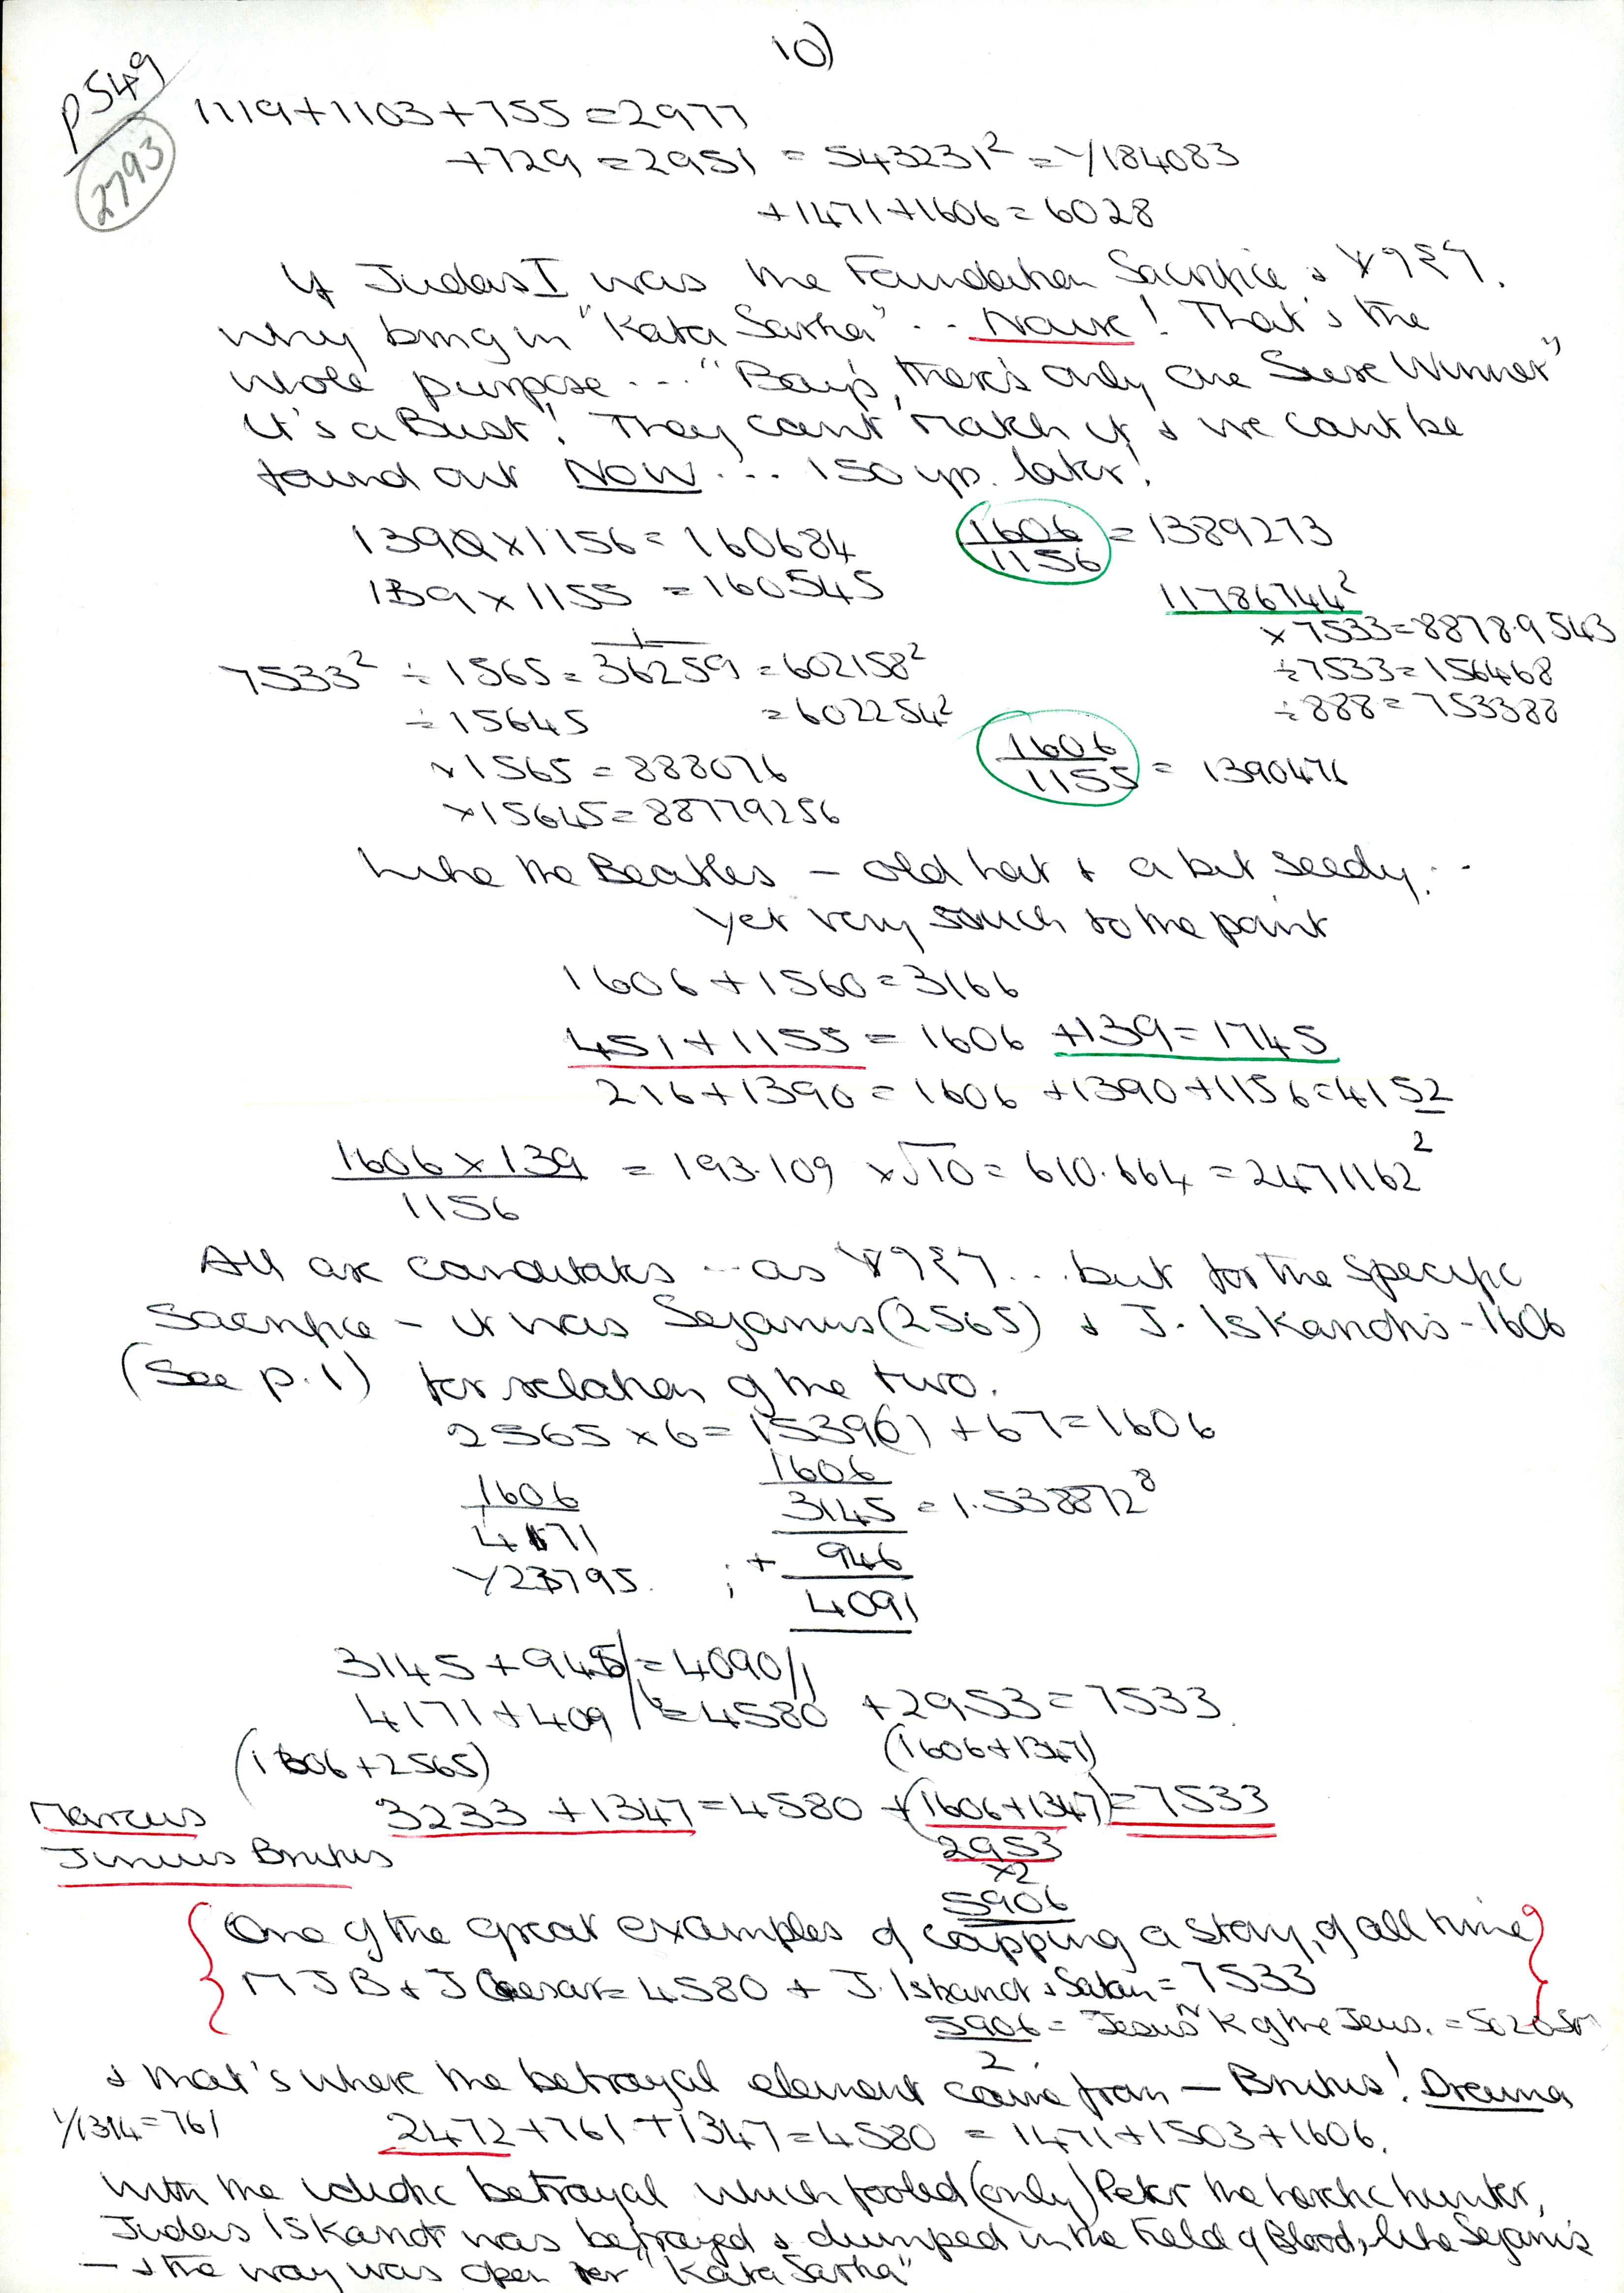 10)
p549
2793
1119+1103+755=2977
+729=2951 = 543231² = Y184083
+1471+1606=6028
If Judas I was the Foundation Sacrifice &
why bring in "Kata Sarka" .. Nowk! That's the
whole purpose ... "Boys, there's only one Sure Winner"
It's a Bust! They can't match it & we can't be
found out NOW ... 150 yrs. later!
1390×1156=160684
1606/1156 = 1389273
139×1155=160545
11786744²
×7533=8878.9543
7533² ÷1565=36259=602158²
÷7533=156468
÷15645 =602254²
÷888=753388
×1565=888076
1606/1155 = 1390476
×15645=88779256
Like the Beatles – old hat & a bit seedy...
yet very much to the point
1606+1560=3166
451+1155=1606 +139=1745
216+1390=1606 +1390+1156=4152
1606×139/1156 = 193.109 ×√10=610.664 = 2471162²
All are candidates ... as ... but for the specific
Sacrifice – it was Sejanus (2565) & J. Iskandis-1606
(See p.1) for relation of the two.
2565×6=1539(0) +67=1606
1606/4171
Y23795.
1606/3145 = 1.538872⁸
; + 946
4091
3145+945/6=4090/1
4171+409/=4580 +2953=7533.
(1606+2565) (1606+1347)
Marcus 3233+1347=4580 +(1606+1347)=7533
Junius Brutus
2953
×2
5906
One of the great examples of capping a story, of all time
MJB & J Caesar=4580 + J. Iskariot & Satan=7533
5906/2 = Jesus N K of the Jews. =
& that's where the betrayal element came from – Brutus! Drama
Y1314=761 2472+761+1347=4580 = 1471+1503+1606.
With the idiotic betrayal which fooled (only) Peter the heretic hunter,
Judas Iskariot was betrayed & dumped in the Field of Blood, like Sejanus
– & the way was open for "Kata Sarka"